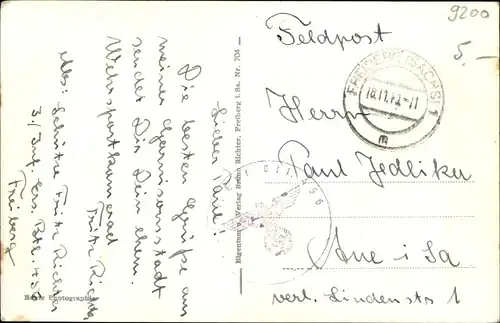 9200
5.-
Feldpost
FREIBERG (SACHS) 1
18.11.42-11
m
Herrn
Paul Jedlika
Aue i Sa
verl. Lindenstr 1
Lieber Paul!
Die besten Grüße aus
meiner Garnisonsstadt
sendet Dir Dein ehem.
Wehrsportkamerad
Fritz Richter
Abs: Schütze Fritz Richter
3./Inf. Ers. Btl. 456
Freiberg
Eigentum Verlag Bruno Richter, Freiberg i. Sa. Nr. 704
Photographie